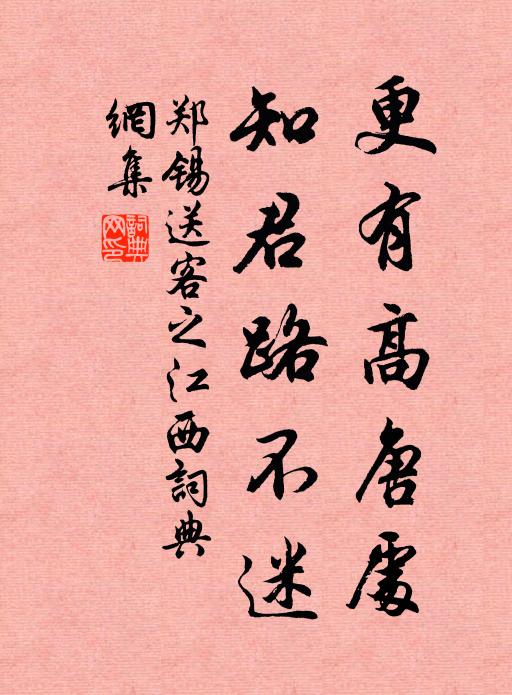 更有高唐處
知君路不迷
郑锡送客之江西詞典
網集
詞典
网印